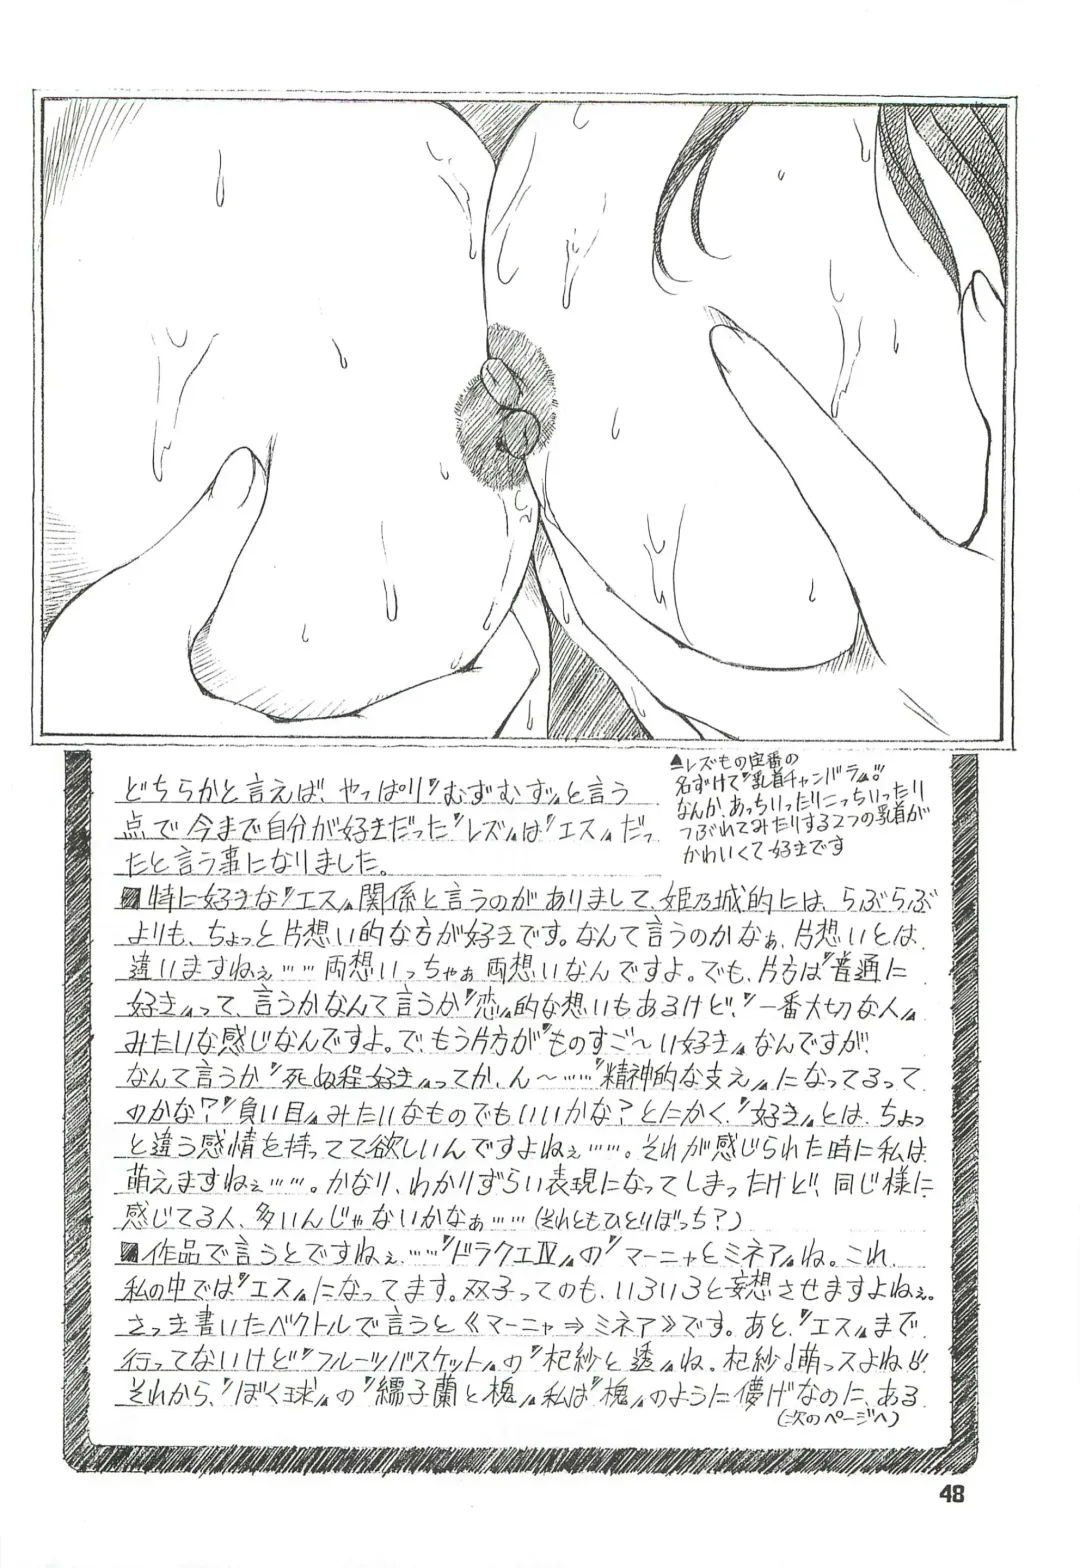 ▲レズもの定番の
名ずけて〝乳首チャンバラ〟!!
なんか、あっちいったりこっちいったり
つぶれてみたりする2つの乳首が
かわいくて好きです
どちらかと言えば、やっぱり〝むずむず〟と言う
点で今まで自分が好きだった〝レズ〟は〝エス〟だっ
たと言う事になりました。
■特に好きな〝エス〟関係と言うのがありまして、姫乃城的には、らぶらぶ
よりも、ちょっと片想い的な方が好きです。なんて言うのかなぁ、片想いとは
違いますねぇ……両想いっちゃぁ両想いなんですよ。でも、片方は〝普通に
好き〟って、言うかなんて言うか〝恋〟的な想いもあるけど、〝一番大切な人〟
みたいな感じなんですよ。で、もう片方が〝ものすご〜い好き〟なんですが、
なんて言うか〝死ぬ程好き〟ってか、ん〜……〝精神的な支え〟になってるって
のかな?〝負い目〟みたいなものでもいいかな?とにかく、〝好き〟とは、ちょっ
と違う感情を持ってて欲しいんですよねぇ……。それが感じられた時に私は
萌えますねぇ……。かなり、わかりずらい表現になってしまったけど、同じ様に
感じてる人、多いんじゃないかなぁ……(それともひとりぼっち?)
■作品で言うとですねぇ……〝ドラクエⅣ〟の〝マーニャとミネア〟ね。これ、
私の中では〝エス〟になってます。双子ってのも、いろいろと妄想させますよねぇ。
さっき書いたベクトルで言うと《マーニャ⇒ミネア》です。あと、〝エス〟まで
行ってないけど〝フルーツバスケット〟の〝杞紗と透〟ね。杞紗!萌っスよね!!
それから、〝ぼく球〟の〝繻子蘭と槐〟私は〝槐〟のように儚げなのに、ある
(次のページへ)
48